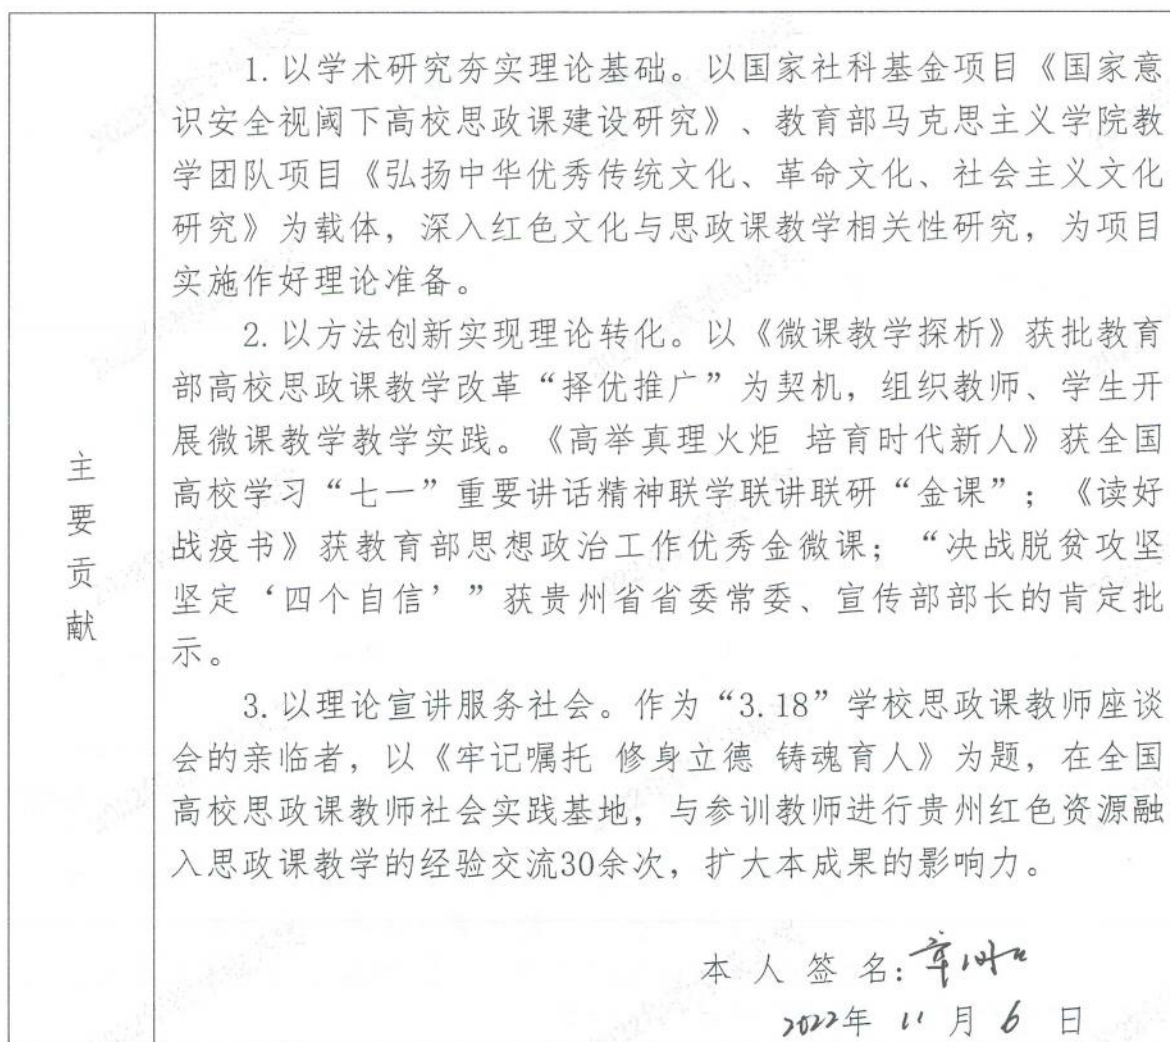 主要贡献
1. 以学术研究夯实理论基础。以国家社科基金项目《国家意
识安全视阈下高校思政课建设研究》、教育部马克思主义学院教
学团队项目《弘扬中华优秀传统文化、革命文化、社会主义文化
研究》为载体，深入红色文化与思政课教学相关性研究，为项目
实施作好理论准备。
2. 以方法创新实现理论转化。以《微课教学探析》获批教育
部高校思政课教学改革“择优推广”为契机，组织教师、学生开
展微课教学教学实践。《高举真理火炬 培育时代新人》获全国
高校学习“七一”重要讲话精神联学联讲联研“金课”；《读好
战疫书》获教育部思想政治工作优秀金微课；“决战脱贫攻坚
坚定‘四个自信’”获贵州省省委常委、宣传部部长的肯定批
示。
3. 以理论宣讲服务社会。作为“3.18”学校思政课教师座谈
会的亲临者，以《牢记嘱托 修身立德 铸魂育人》为题，在全国
高校思政课教师社会实践基地，与参训教师进行贵州红色资源融
入思政课教学的经验交流30余次，扩大本成果的影响力。
本人签名：
2022年 11 月 6 日